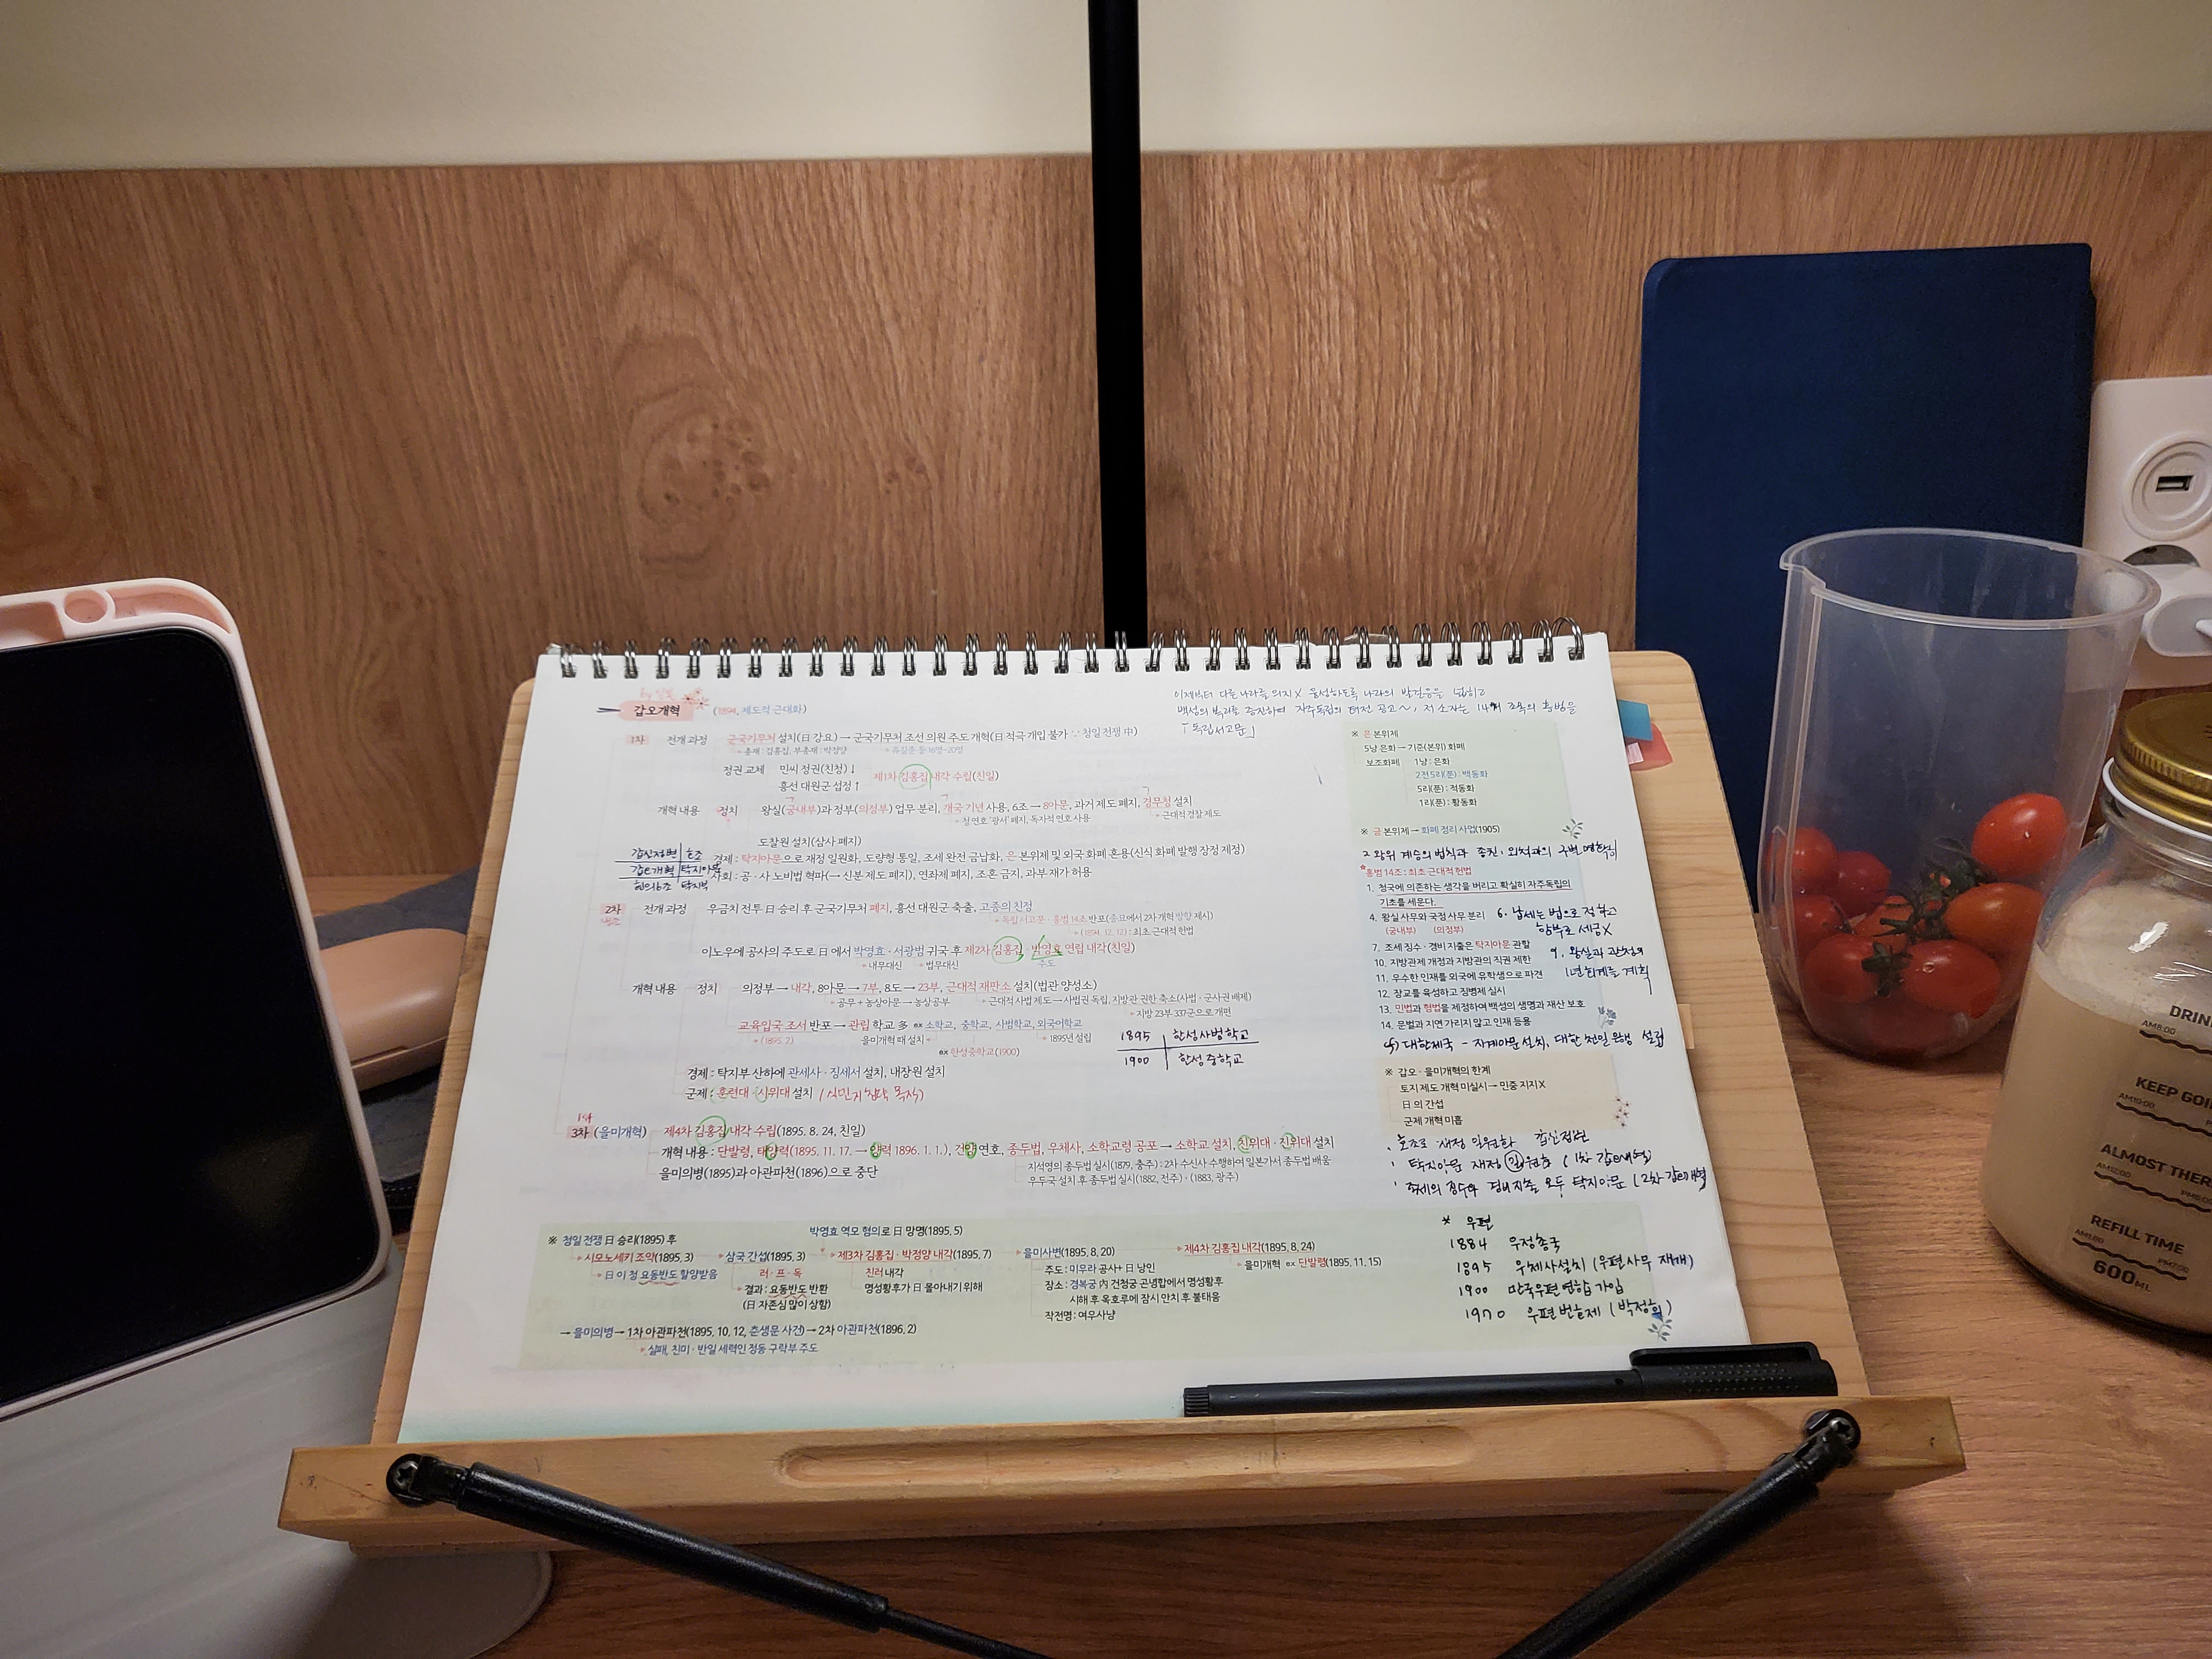 갑오개혁 (1894, 제도적 근대화)
이제부터 다른 나라를 의지X 융성하도록 나라의 발걸음을 넓히고
백성의 복리를 증진하며 자주독립의 터전 공고~, 저 소자는 14개 조목의 홍범을
「독립서고문」
1차 전개 과정 군국기무처 설치(日 강요) → 군국기무처 조선 의원 주도 개혁(日 적극 개입 불가 ∵ 청일 전쟁 中)
총재 : 김홍집, 부총재 : 박정양
유길준 등 16명~20명
정권 교체 민씨 정권(친청)↓
흥선 대원군 섭정↑
제1차 김홍집 내각 수립(친일)
개혁 내용 정치 왕실(궁내부)과 정부(의정부) 업무 분리, 개국 기년 사용, 6조 → 8아문, 과거 제도 폐지, 경무청 설치
청 연호 '광서' 폐지, 독자적 연호 사용
근대적 경찰 제도
도찰원 설치(삼사 폐지)
갑신정변 호조
갑오개혁 탁지아문
경제 : 탁지아문으로 재정 일원화, 도량형 통일, 조세 완전 금납화, 은 본위제 및 외국 화폐 혼용(신식 화폐 발행 장정 제정)
사회 : 공·사 노비법 혁파(→ 신분 제도 폐지), 연좌제 폐지, 조혼 금지, 과부 재가 허용
2차 전개 과정 우금치 전투 日 승리 후 군국기무처 폐지, 흥선 대원군 축출, 고종의 친정
독립 서고문·홍범 14조 반포(종묘에서 2차 개혁 방향 제시)
(1894. 12. 12) : 최초 근대적 헌법
이노우에 공사의 주도로 日에서 박영효·서광범 귀국 후 제2차 김홍집·박영효 연립 내각(친일)
내무대신 법무대신
주도
개혁 내용 정치 의정부 → 내각, 8아문 → 7부, 8도 → 23부, 근대적 재판소 설치(법관 양성소)
공무+농상아문 → 농상공부
근대적 사법 제도 → 사법권 독립, 지방관 권한 축소(사법·군사권 배제)
지방 23부 337군으로 개편
교육입국 조서 반포 → 관립 학교 多 ex 소학교, 중학교, 사범학교, 외국어학교
(1895. 2)
을미개혁 때 설치
1895년 설립
ex 한성중학교(1900)
1895 한성사범학교
1900 한성중학교
경제 : 탁지부 산하에 관세사·징세서 설치, 내장원 설치
군제 : 훈련대·시위대 설치
3차 (을미개혁) 제4차 김홍집 내각 수립(1895. 8. 24, 친일)
개혁 내용 : 단발령, 태양력(1895. 11. 17. → 양력 1896. 1. 1.), 건양 연호, 종두법, 우체사, 소학교령 공포 → 소학교 설치, 친위대·진위대 설치
지석영의 종두법 실시(1879, 충주) : 2차 수신사 수행하여 일본가서 종두법 배움
우두국 설치 후 종두법 실시(1882, 전주)·(1883, 광주)
을미의병(1895)과 아관파천(1896)으로 중단
※ 은 본위제
5냥 은화 → 기준(본위) 화폐
보조화폐 1냥 : 은화
2전 5리(푼) : 백동화
5리(푼) : 적동화
1리(푼) : 황동화
※ 금 본위제 → 화폐 정리 사업(1905)
2. 왕위 계승의 법칙과 종친, 외척과의 구별 명확히
*홍범 14조 : 최초 근대적 헌법
1. 청국에 의존하는 생각을 버리고 확실히 자주독립의
기초를 세운다.
4. 왕실 사무와 국정 사무 분리
(궁내부) (의정부)
6. 납세는 법으로 정하고
함부로 세금X
7. 조세 징수·경비 지출은 탁지아문 관할
9. 왕실과 관청의
1년 회계를 계획
10. 지방관제 개정과 지방관의 직권 제한
11. 우수한 인재를 외국에 유학생으로 파견
12. 장교를 육성하고 징병제 실시
13. 민법과 형법을 제정하여 백성의 생명과 재산 보호
14. 문벌과 지연 가리지 않고 인재 등용
대한제국 - 지계아문 설치, 대한천일은행 설립
※ 갑오·을미개혁의 한계
토지 제도 개혁 미실시 → 민중 지지X
日의 간섭
군제 개혁 미흡
호조로 재정 일원화 갑신정변
탁지아문 재정 일원화 (1차 갑오개혁)
조세의 징수와 경비지출 모두 탁지아문 (2차 갑오개혁)
※ 청일 전쟁 日 승리(1895) 후
시모노세키 조약(1895. 3)
日이 청 요동반도 할양받음
삼국 간섭(1895. 3)
러·프·독
결과 : 요동반도 반환
(日 자존심 많이 상함)
박영효 역모 혐의로 日 망명(1895. 5)
제3차 김홍집·박정양 내각(1895. 7)
친러 내각
명성황후가 日 몰아내기 위해
을미사변(1895. 8. 20)
주도 : 미우라 공사+日 낭인
장소 : 경복궁 內 건청궁 곤녕합에서 명성황후
시해 후 옥호루에 잠시 안치 후 불태움
작전명 : 여우사냥
제4차 김홍집 내각(1895. 8. 24)
을미개혁 ex 단발령(1895. 11. 15)
→ 을미의병 → 1차 아관파천(1895. 10. 12, 춘생문 사건) → 2차 아관파천(1896. 2)
실패, 친미·반일 세력인 정동 구락부 주도
* 우편
1884 우정총국
1895 우체사설치 (우편사무 재개)
1900 만국우편연합 가입
1970 우편번호제 (박정희)
DRIN
AM8:00
KEEP GOI
AM10:00
ALMOST THER
AM12:00
PM6:00
REFILL TIME
AM1:00
PM7:00
600ML